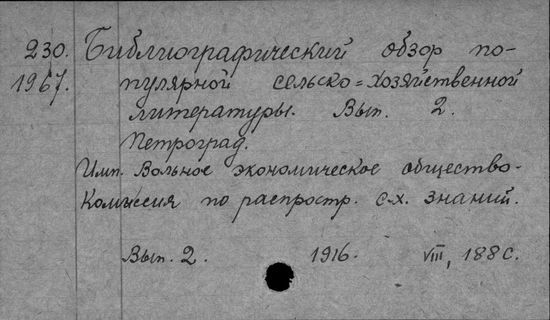 230. Библиографический обзор по-
1967. пулярной сельско=хозяйственной
литературы. Вып. 2.
Петроград.
Имп. Вольное экономическое общество.
Комиссия по распростр. с-х. знаний.
Вып. 2. 1916. VIII, 188 с.